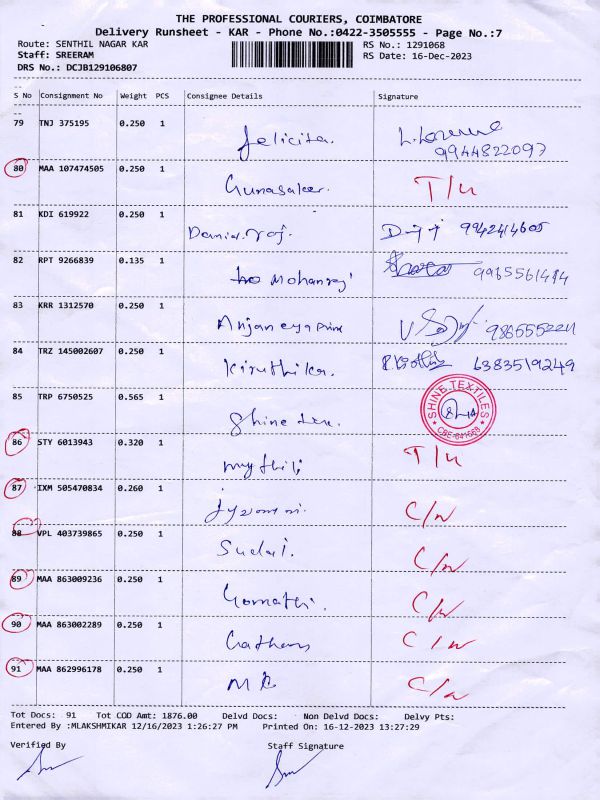 THE PROFESSIONAL COURIERS, COIMBATORE
Delivery Runsheet - KAR - Phone No.:0422-3505555 - Page No.:7
Route: SENTHIL NAGAR KAR RS No.: 1291068
Staff: SREERAM RS Date: 16-Dec-2023
DRS No.: DCJB129106807
S No Consignment No Weight PCS Consignee Details Signature
79 TNJ 375195 0.250 1
felicita. 9944822097
80 MAA 107474505 0.250 1
Gunasaker. T/U
81 KDI 619922 0.250 1
9942414605
82 RPT 9266839 0.135 1
Mohanraj 9965561414
83 KRR 1312570 0.250 1
Anjaneya
84 TRZ 145002607 0.250 1
Kiruthika. 6383519249
85 TRP 6750525 0.565 1
Shine SHINE TEXTILES
86 STY 6013943 0.320 1
mythili T/U
87 IXM 505470834 0.260 1
C/N
88 VPL 403739865 0.250 1
C/N
89 MAA 863009236 0.250 1
Gomathi. C/N
90 MAA 863002289 0.250 1
C/N
91 MAA 862996178 0.250 1
C/N
Tot Docs: 91 Tot COD Amt: 1876.00 Delvd Docs: Non Delvd Docs: Delvy Pts:
Entered By :MLAKSHMIKAR 12/16/2023 1:26:27 PM Printed On: 16-12-2023 13:27:29
Verified By Staff Signature